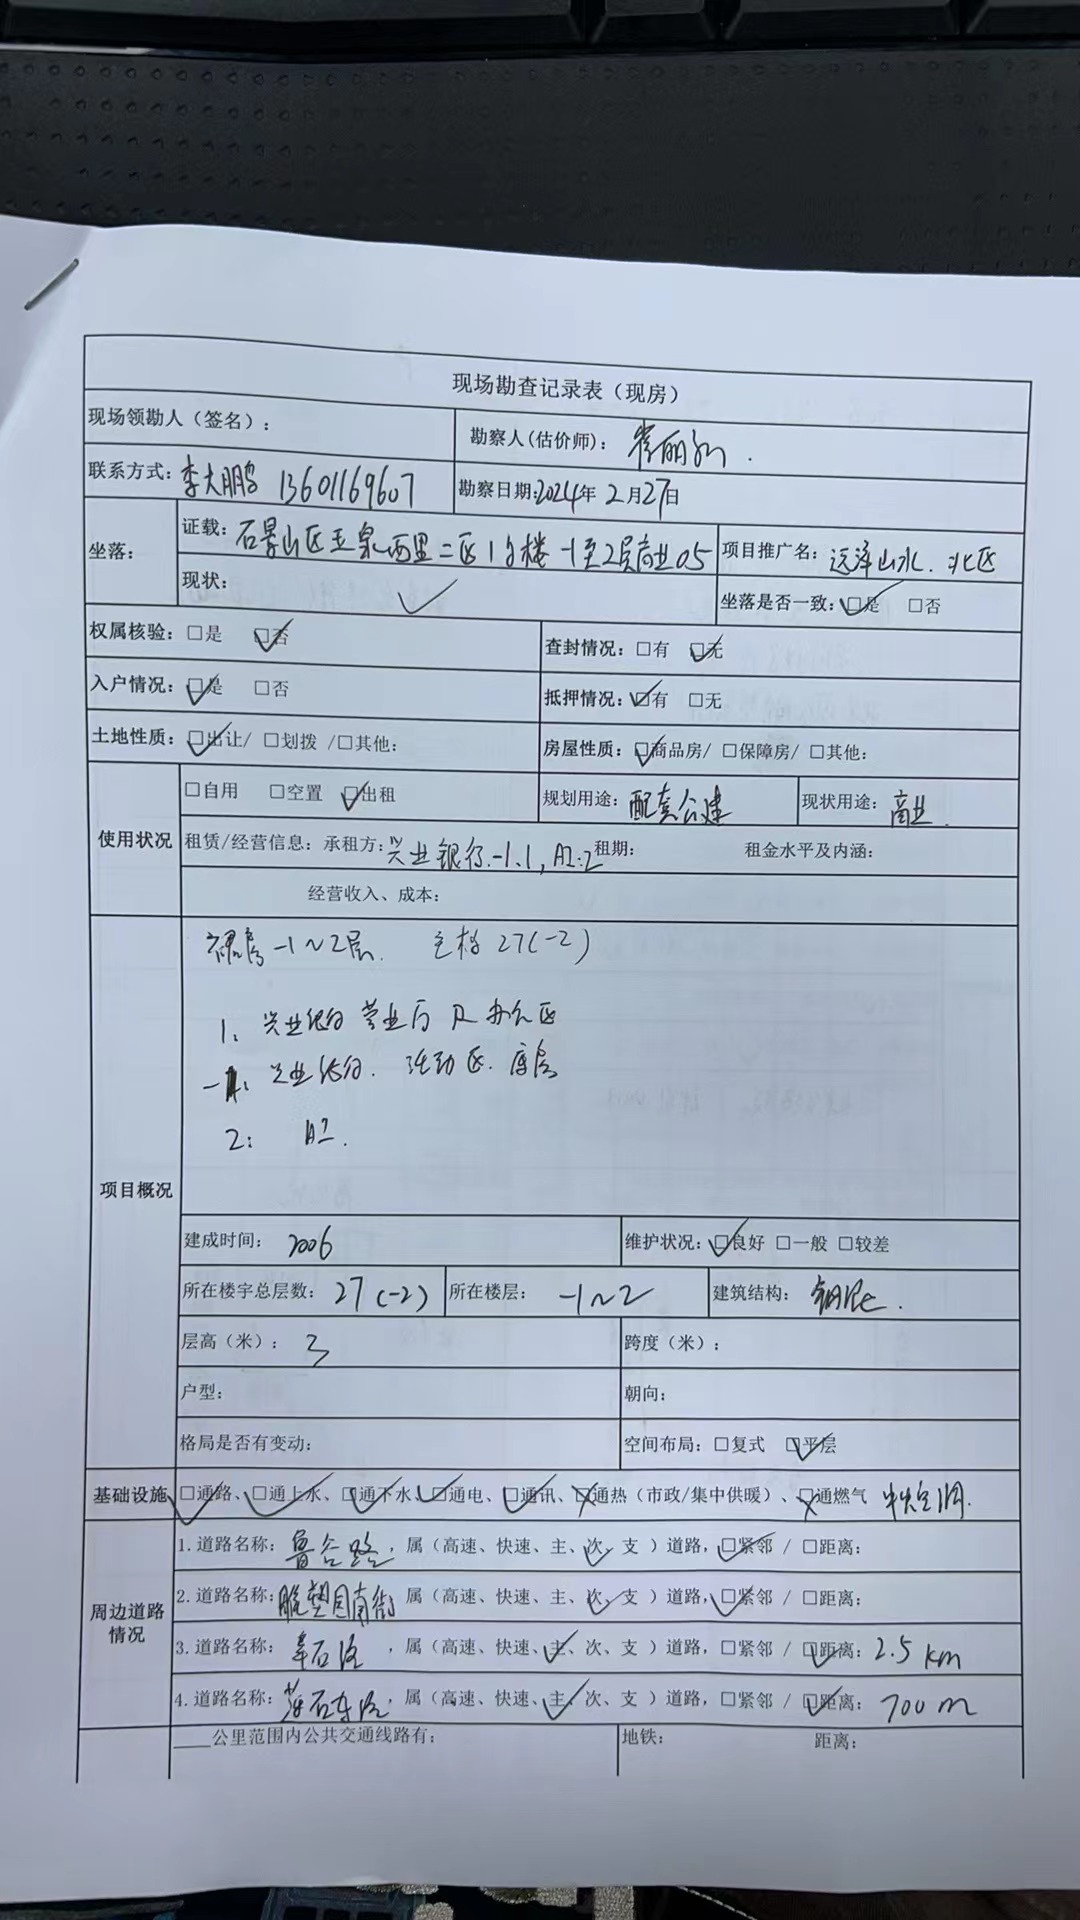 现场勘查记录表（现房）
现场领勘人（签名）： 勘察人(估价师)：崔丽
联系方式：李大鹏 13601169607 勘察日期:2024年 2月27日
坐落： 证载：石景山区玉泉西里二区1号楼-1至2层商业05 项目推广名：远洋山水.北区
现状： 坐落是否一致：☑是 □否
权属核验：□是 ☑否 查封情况：□有 ☑无
入户情况：☑是 □否 抵押情况：☑有 □无
土地性质：☑出让/ □划拨 /□其他: 房屋性质：☑商品房/ □保障房/ □其他:
使用状况 □自用 □空置 ☑出租 规划用途：配套公建 现状用途：商业
租赁/经营信息：承租方:兴业银行.-1.1, 2 租期： 租金水平及内涵：
经营收入、成本：
项目概况
裙房 -1～2层. 主楼 27(-2)
1. 兴业银行 营业厅 及 办公区
兴业银行. 活动区. 库房
2:
建成时间： 2006 维护状况：☑良好 □一般 □较差
所在楼宇总层数：27(-2) 所在楼层：-1～2 建筑结构：钢混.
层高（米）：3 跨度（米）：
户型： 朝向：
格局是否有变动： 空间布局：□复式 ☑平层
基础设施 ☑通路、☑通上水、☑通下水、☑通电、☑通讯、☒通热（市政/集中供暖）、☒通燃气 中央空调.
周边道路情况
1.道路名称：鲁谷路，属（高速、快速、主、次✓、支）道路，☑紧邻 / □距离：
2.道路名称：雕塑园南街，属（高速、快速、主、次✓、支）道路，☑紧邻 / □距离：
3.道路名称： 石路，属（高速、快速、主✓、次、支）道路，□紧邻 / ☑距离：2.5 km
4.道路名称： 石东路，属（高速、快速、主✓、次、支）道路，□紧邻 / ☑距离：700 m
____公里范围内公共交通线路有： 地铁： 距离：